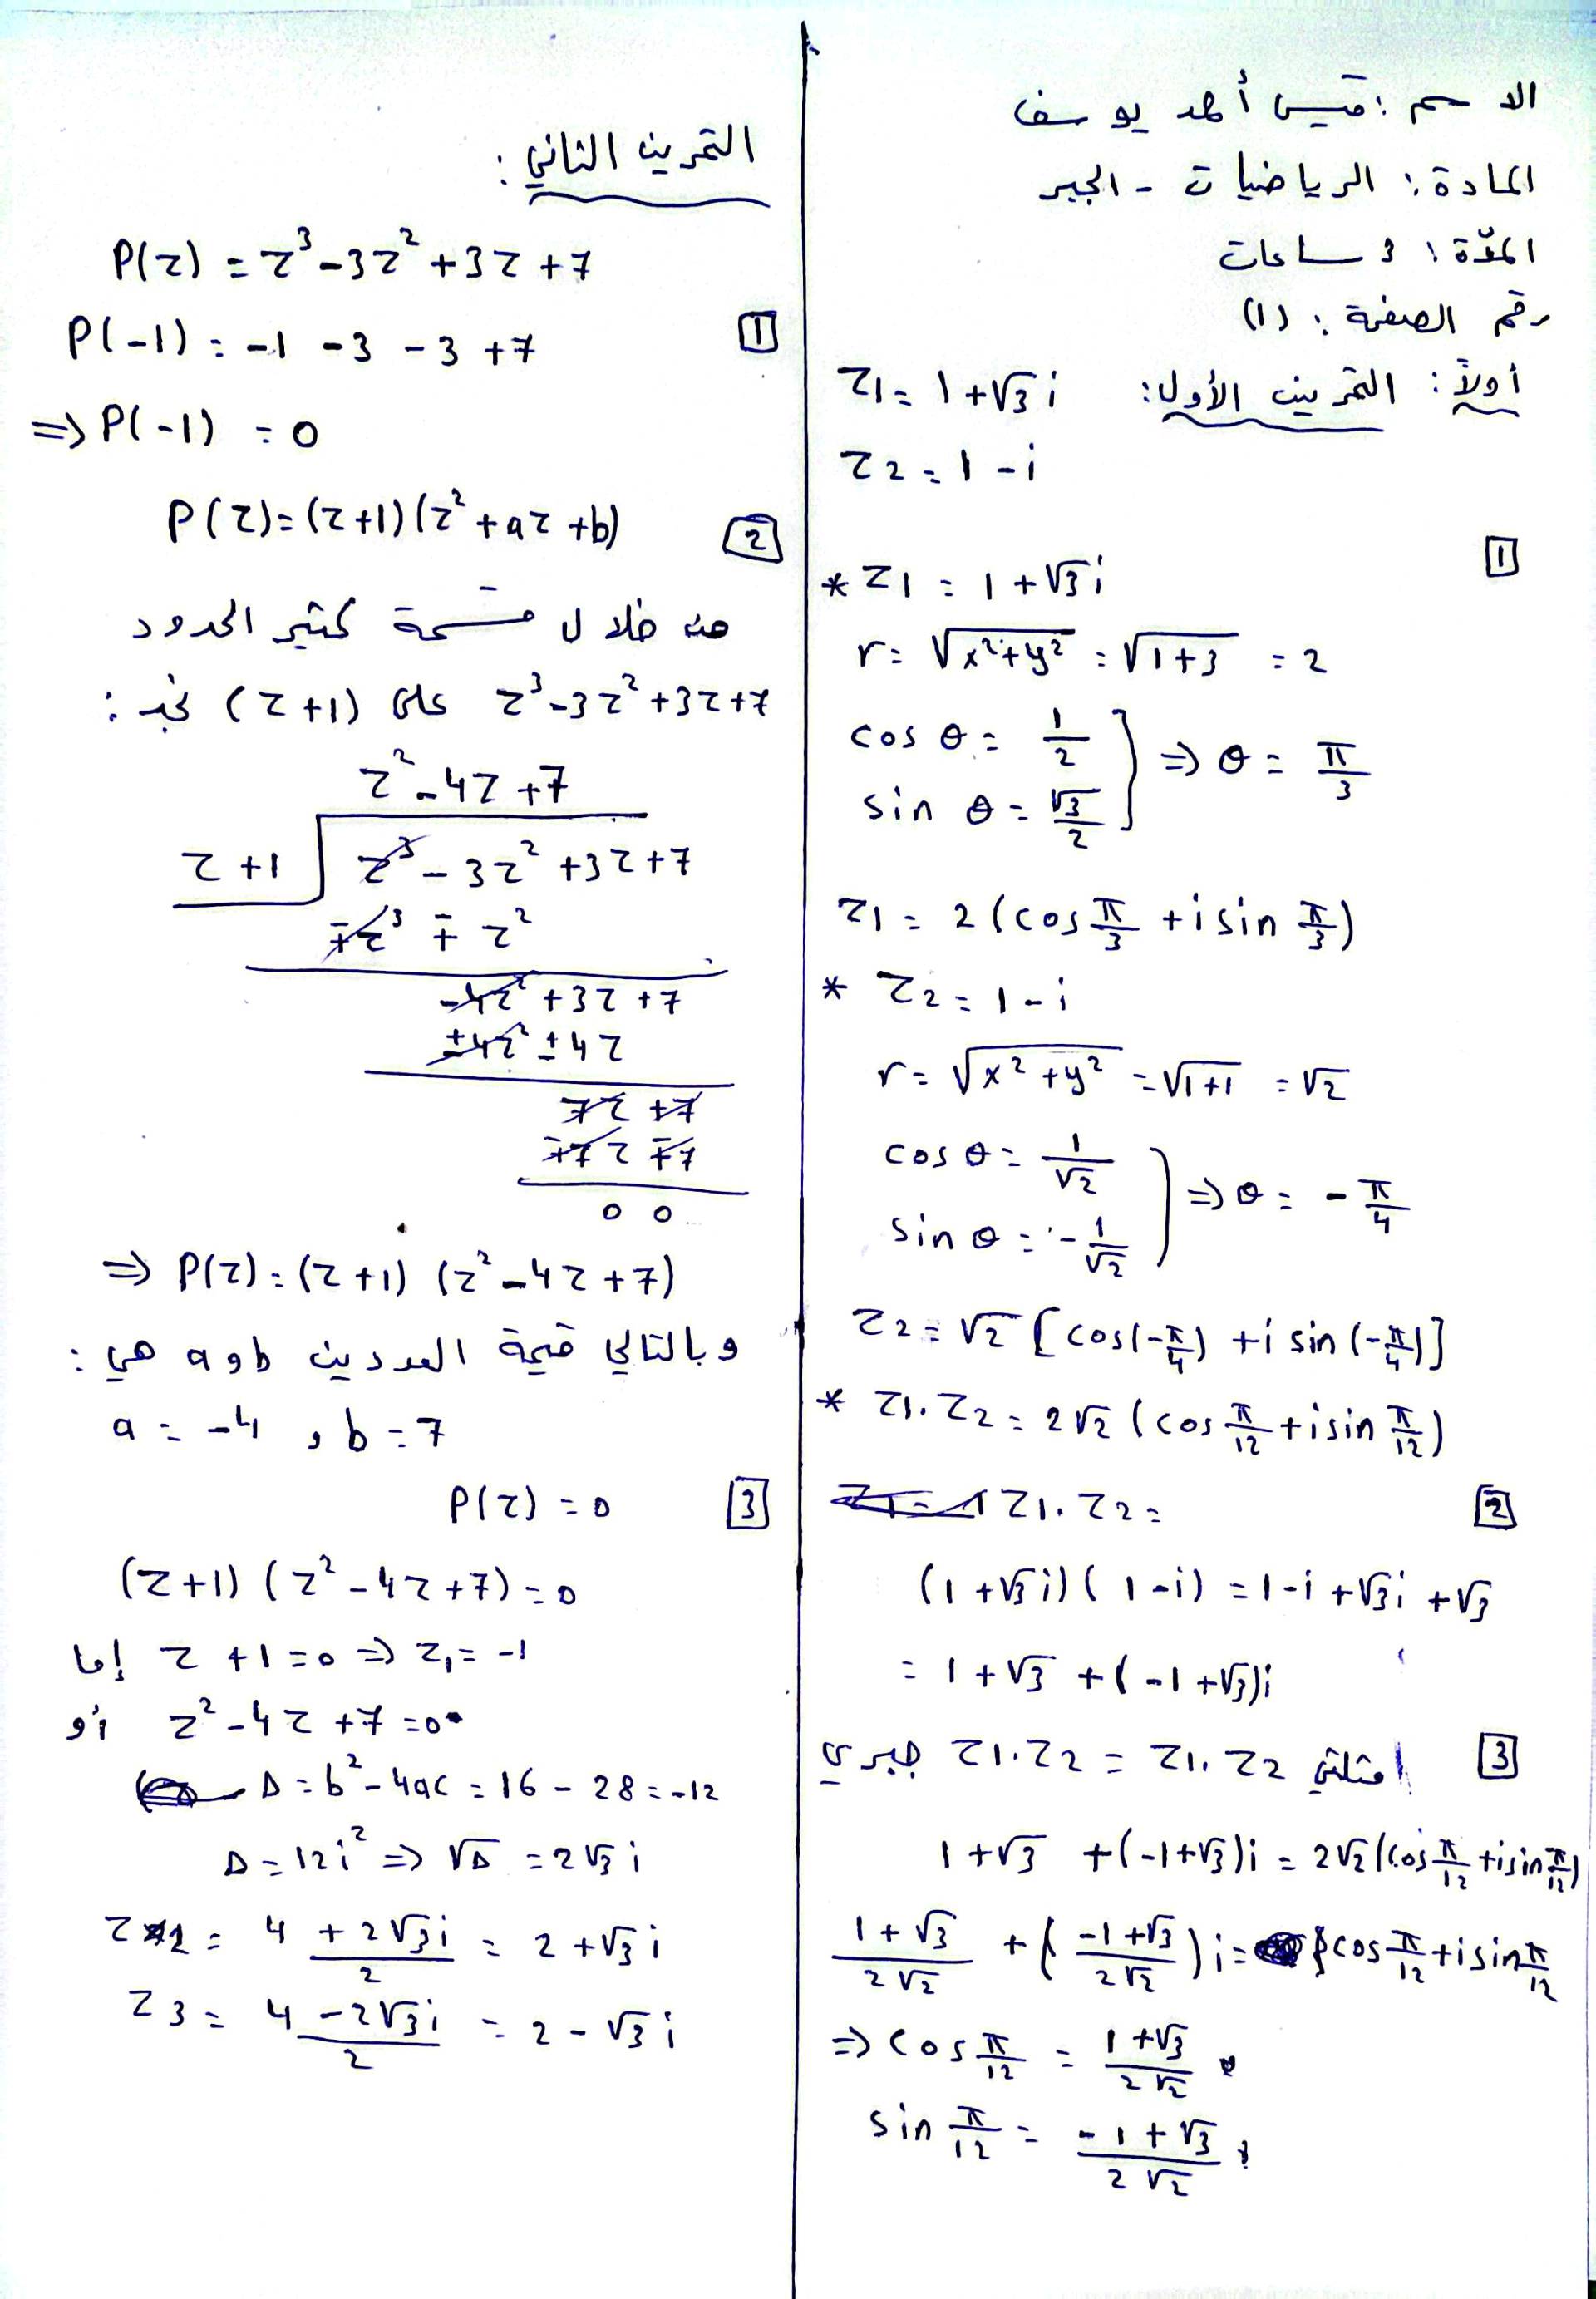 الاسم: قيس أحمد يوسف
المادة: الرياضيات - الجبر
المدّة: 3 ساعات
رقم الصفحة: (1)
أولاً: التمرين الأول: z1 = 1 + √3 i
z2 = 1 - i
1
* z1 = 1 + √3 i
r = √x²+y² = √1+3 = 2
cos θ = 1/2
sin θ = √3/2 } ⇒ θ = π/3
z1 = 2 (cos π/3 + i sin π/3)
* z2 = 1 - i
r = √x²+y² = √1+1 = √2
cos θ = 1/√2
sin θ = -1/√2 } ⇒ θ = -π/4
z2 = √2 [cos(-π/4) + i sin(-π/4)]
* z1.z2 = 2√2 (cos π/12 + i sin π/12)
2 z1.z2 =
(1 + √3 i)(1 - i) = 1 - i + √3 i + √3
= 1 + √3 + (-1 + √3)i
3 مثلثي z1.z2 = z1.z2 جبري
1 + √3 + (-1+√3)i = 2√2 (cos π/12 + i sin π/12)
1 + √3/2√2 + (-1 + √3/2√2) i = cos π/12 + i sin π/12
⇒ cos π/12 = 1 + √3/2√2
sin π/12 = -1 + √3/2√2
التمرين الثاني:
P(z) = z³ - 3z² + 3z + 7
1 P(-1) = -1 - 3 - 3 + 7
⇒ P(-1) = 0
2 P(z) = (z+1)(z² + az + b)
من خلال قسمة كثير الحدود
z³ - 3z² + 3z + 7 على (z+1) نجد:
z² - 4z + 7
z + 1 z³ - 3z² + 3z + 7
∓z³ ∓ z²
-4z² + 3z + 7
±4z² ± 4z
7z + 7
∓7z ∓7
0 0
⇒ P(z) = (z+1) (z² - 4z + 7)
وبالتالي قيمة العددين a و b هي:
a = -4 , b = 7
3 P(z) = 0
(z+1) (z² - 4z + 7) = 0
إما z + 1 = 0 ⇒ z1 = -1
أو z² - 4z + 7 = 0
Δ = b² - 4ac = 16 - 28 = -12
Δ = 12i² ⇒ √Δ = 2√3 i
z2 = 4 + 2√3 i/2 = 2 + √3 i
z3 = 4 - 2√3 i/2 = 2 - √3 i